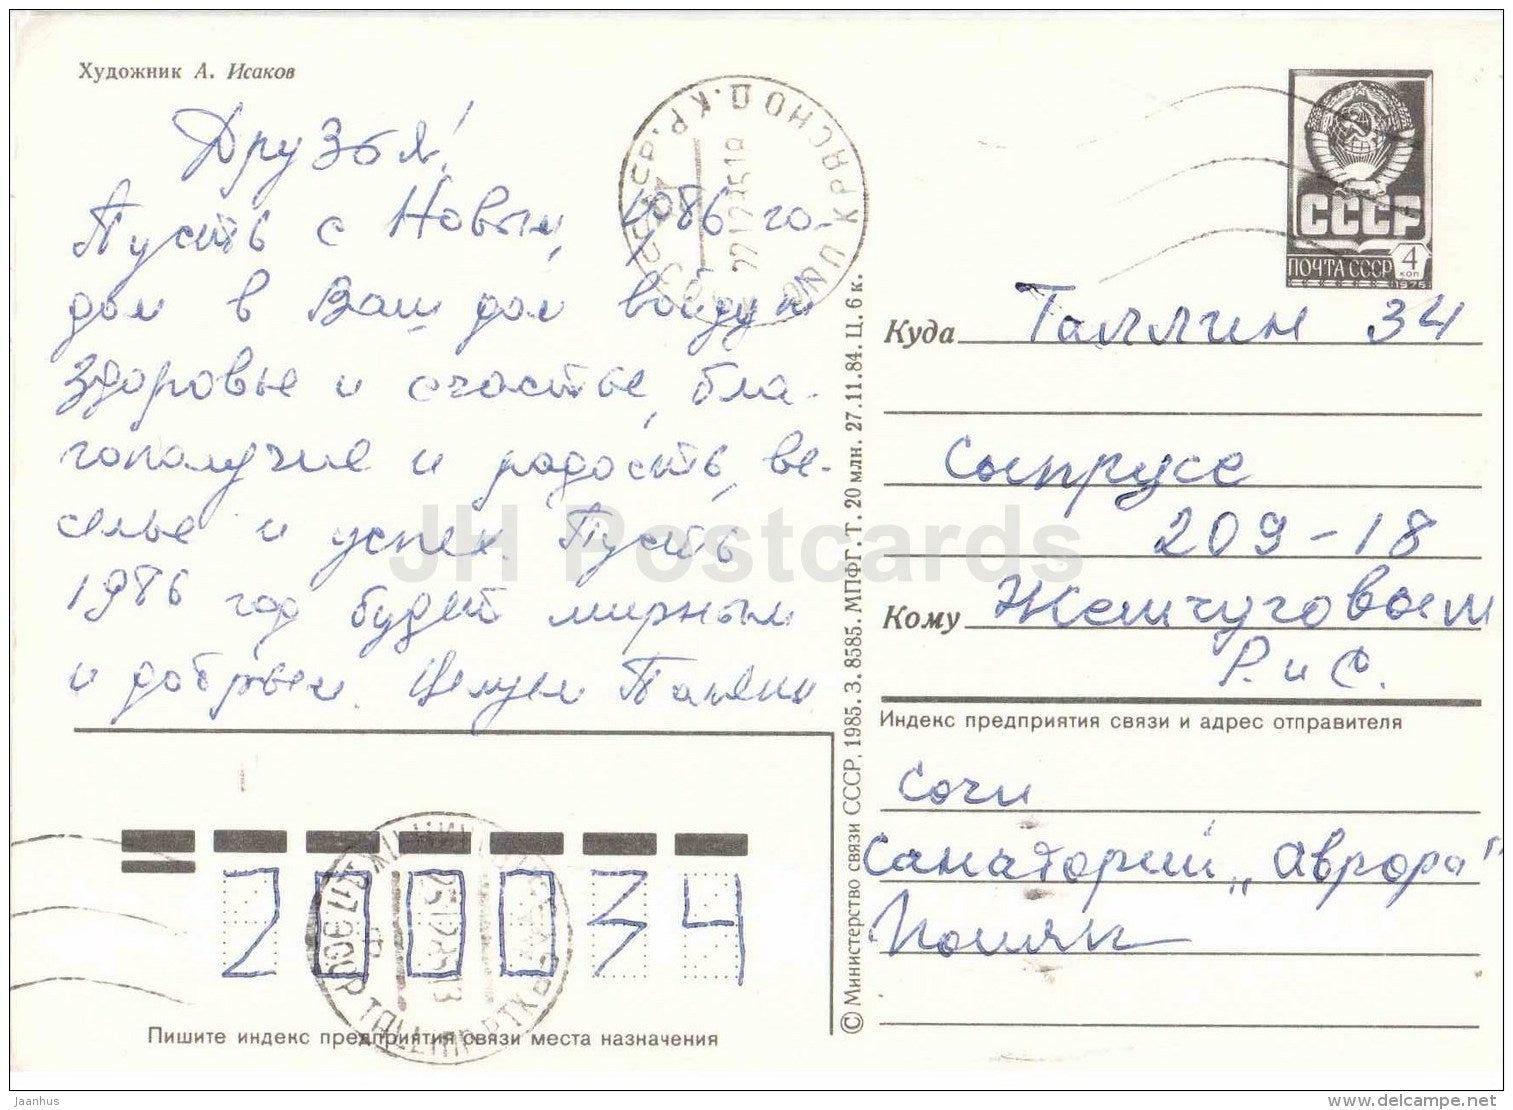 Художник А. Исаков
Друзья!
Пусть с Новым 1986 го-
дом в Ваш дом войдут
здоровье и счастье, бла-
гополучие и радость, ве-
селье и успех. Пусть
1986 год будет мирным
и добрым. Целуем
СССР
ПОЧТА СССР 4 коп
1976
Куда Таллин 34
Сыпрусе
209-18
Кому Жемчуговым
Р. и С.
Индекс предприятия связи и адрес отправителя
Сочи
Санаторий „Аврора"
200034
Пишите индекс предприятия связи места назначения
© Министерство связи СССР, 1985. З. 8585. МПФГ. Т. 20 млн. 27.11.84. Ц. 6 к.
JH Postcards
Jaanhus
delcampe.net